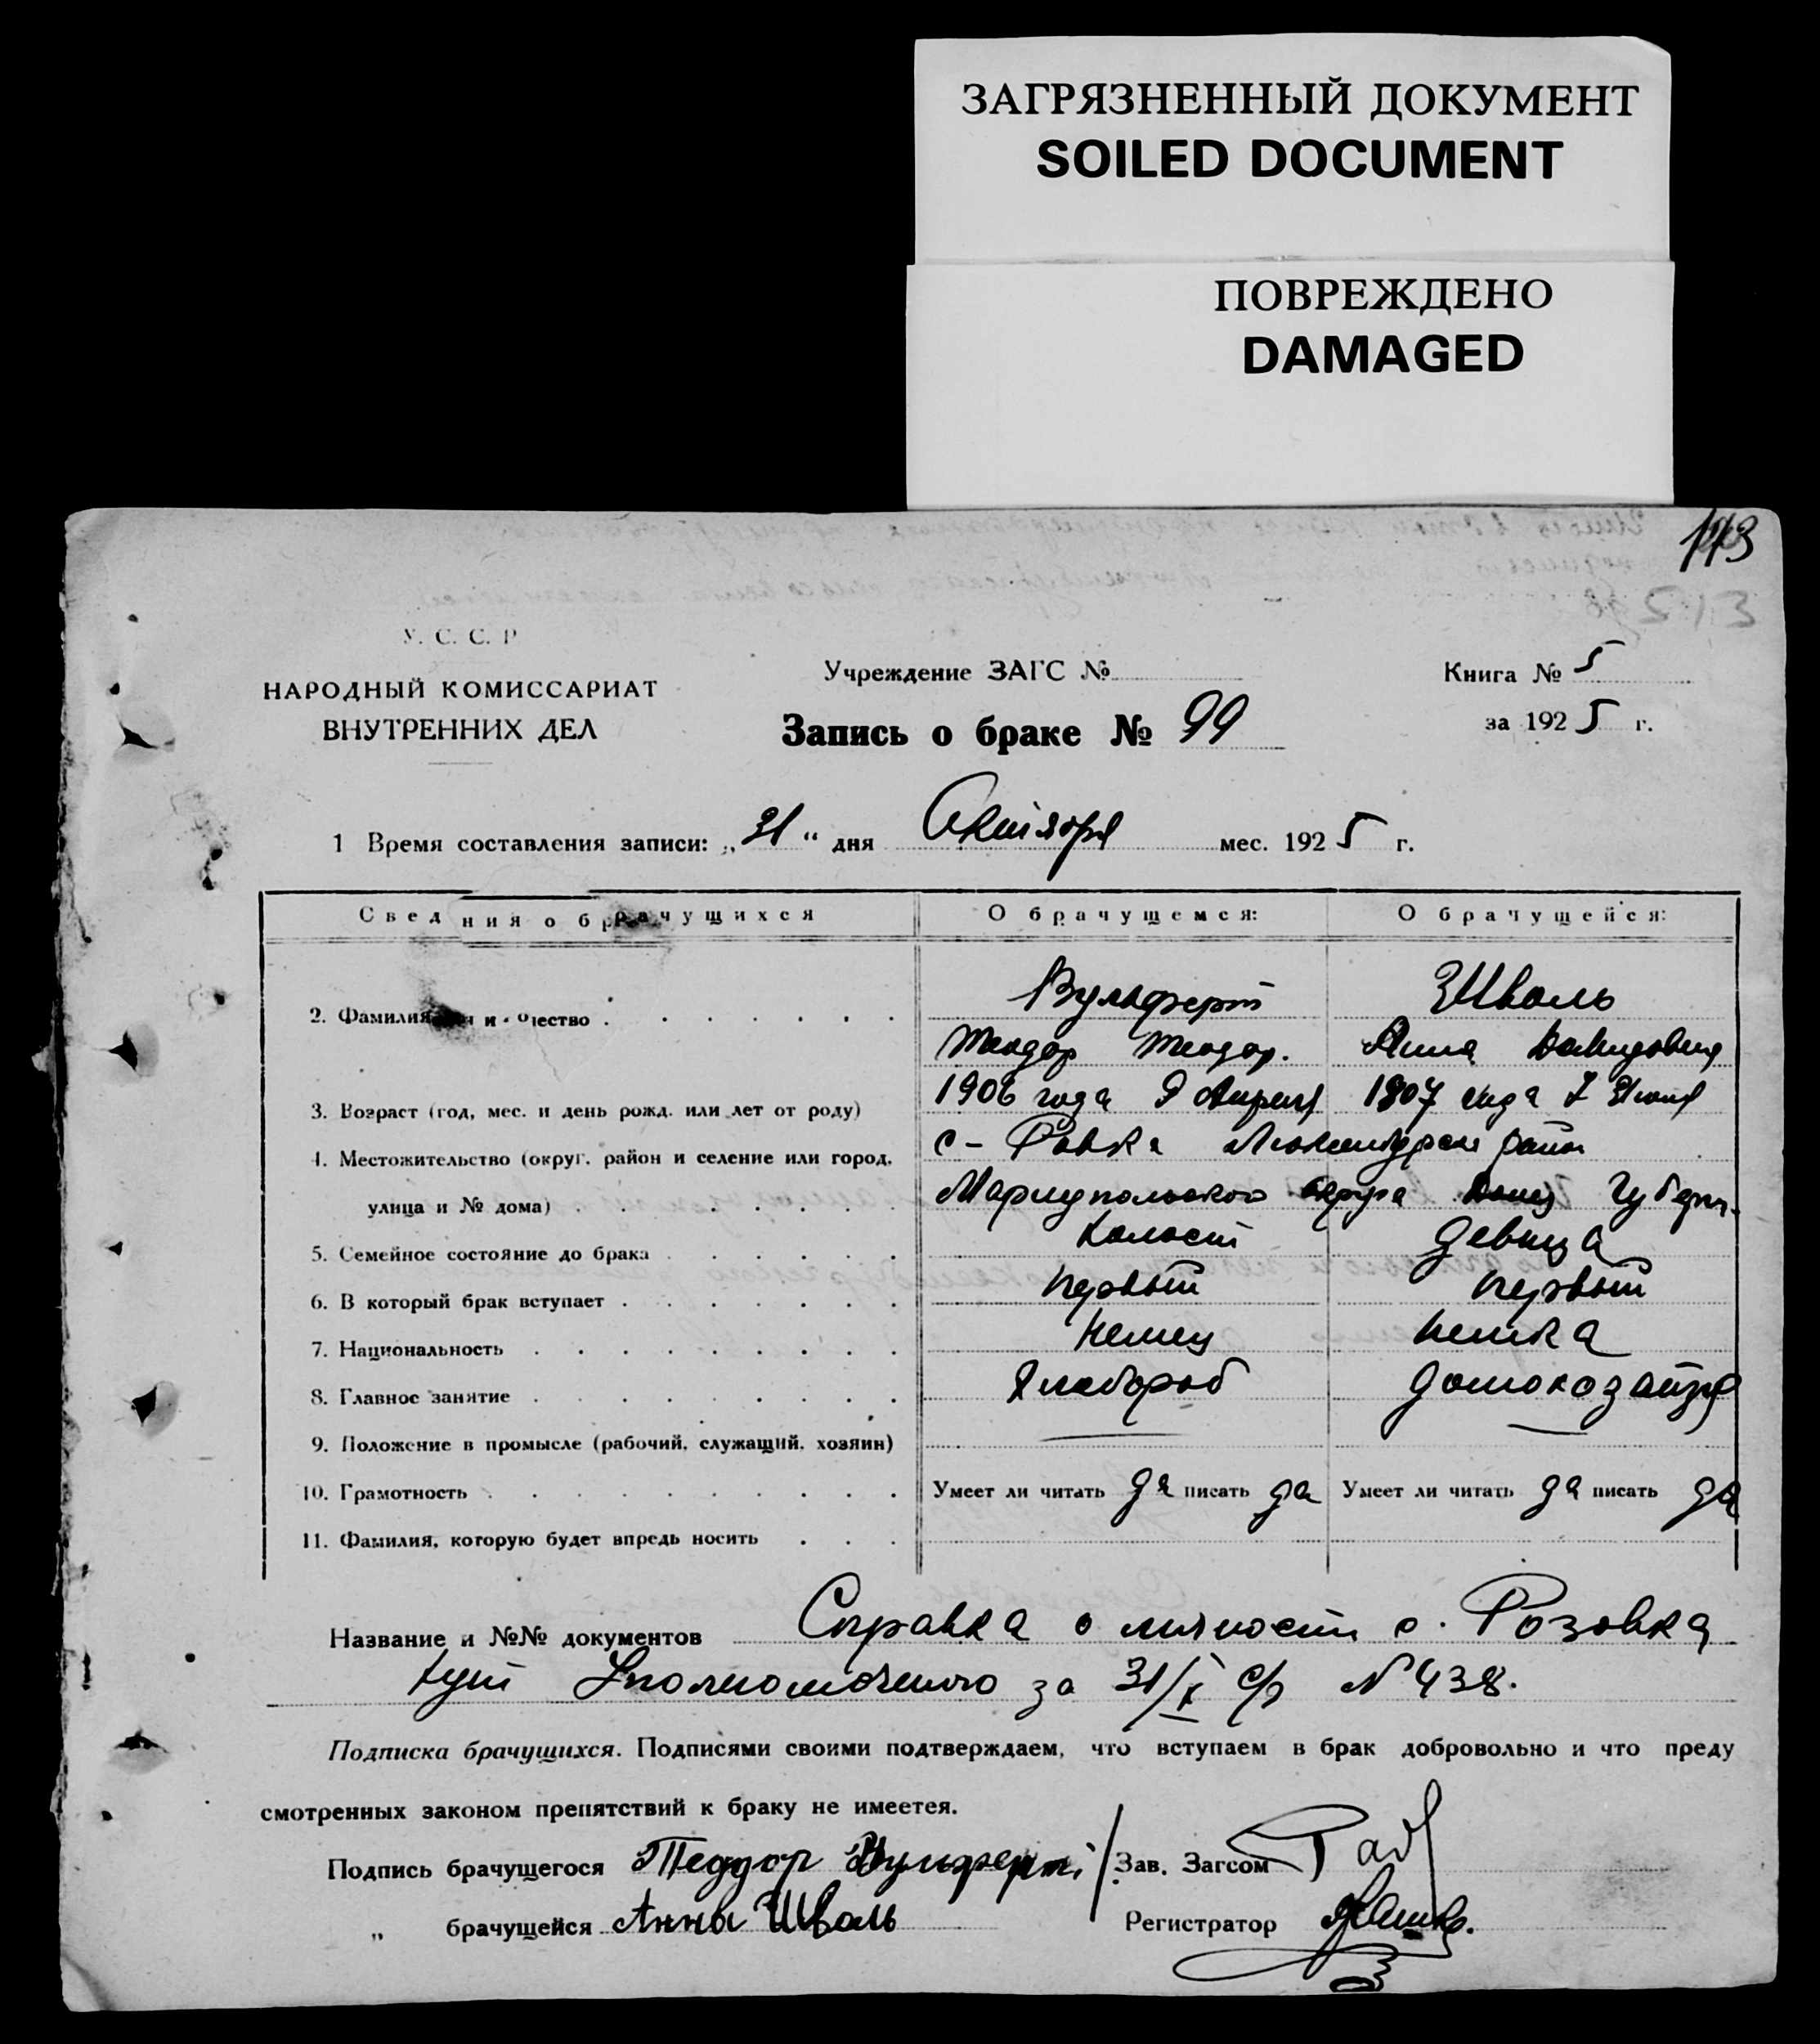 ЗАГРЯЗНЕННЫЙ ДОКУМЕНТ
SOILED DOCUMENT
ПОВРЕЖДЕНО
DAMAGED
113
У. С. С. Р
НАРОДНЫЙ КОМИССАРИАТ
ВНУТРЕННИХ ДЕЛ
Учреждение ЗАГС №
Книга № 5
Запись о браке № 99
за 1925 г.
1 Время составления записи: „31“ дня Октября мес. 1925 г.
Свед ния о брачущихся О брачущемся: О брачущейся:
Вульферт Шваль
2. Фамилия и очество
Теодор Теодор. Анна Давидовна
3. Возраст (год, мес. и день рожд. или лет от роду) 1906 года 9 Апреля 1907 года 7 Июня
4. Местожительство (округ, район и селение или город, с- Люксембургск район
улица и № дома) Мариупольского округа Донец Губерн.
5. Семейное состояние до брака Холост девица
6. В который брак вступает первый первый
7. Национальность Немец немка
8. Главное занятие Хлебороб домохозайка
9. Положение в промысле (рабочий, служащий, хозяин)
10. Грамотность Умеет ли читать да писать да Умеет ли читать да писать да
11. Фамилия, которую будет впредь носить
Название и №№ документов Справка о личности с. Розовка
Уполномоченого за 31/X с/г № 438.
Подписка брачущихся. Подписями своими подтверждаем, что вступаем в брак добровольно и что преду
смотренных законом препятствий к браку не имеетея.
Подпись брачущегося Теодор Вульферт Зав. Загсом
„ брачущейся Анны Шваль Регистратор